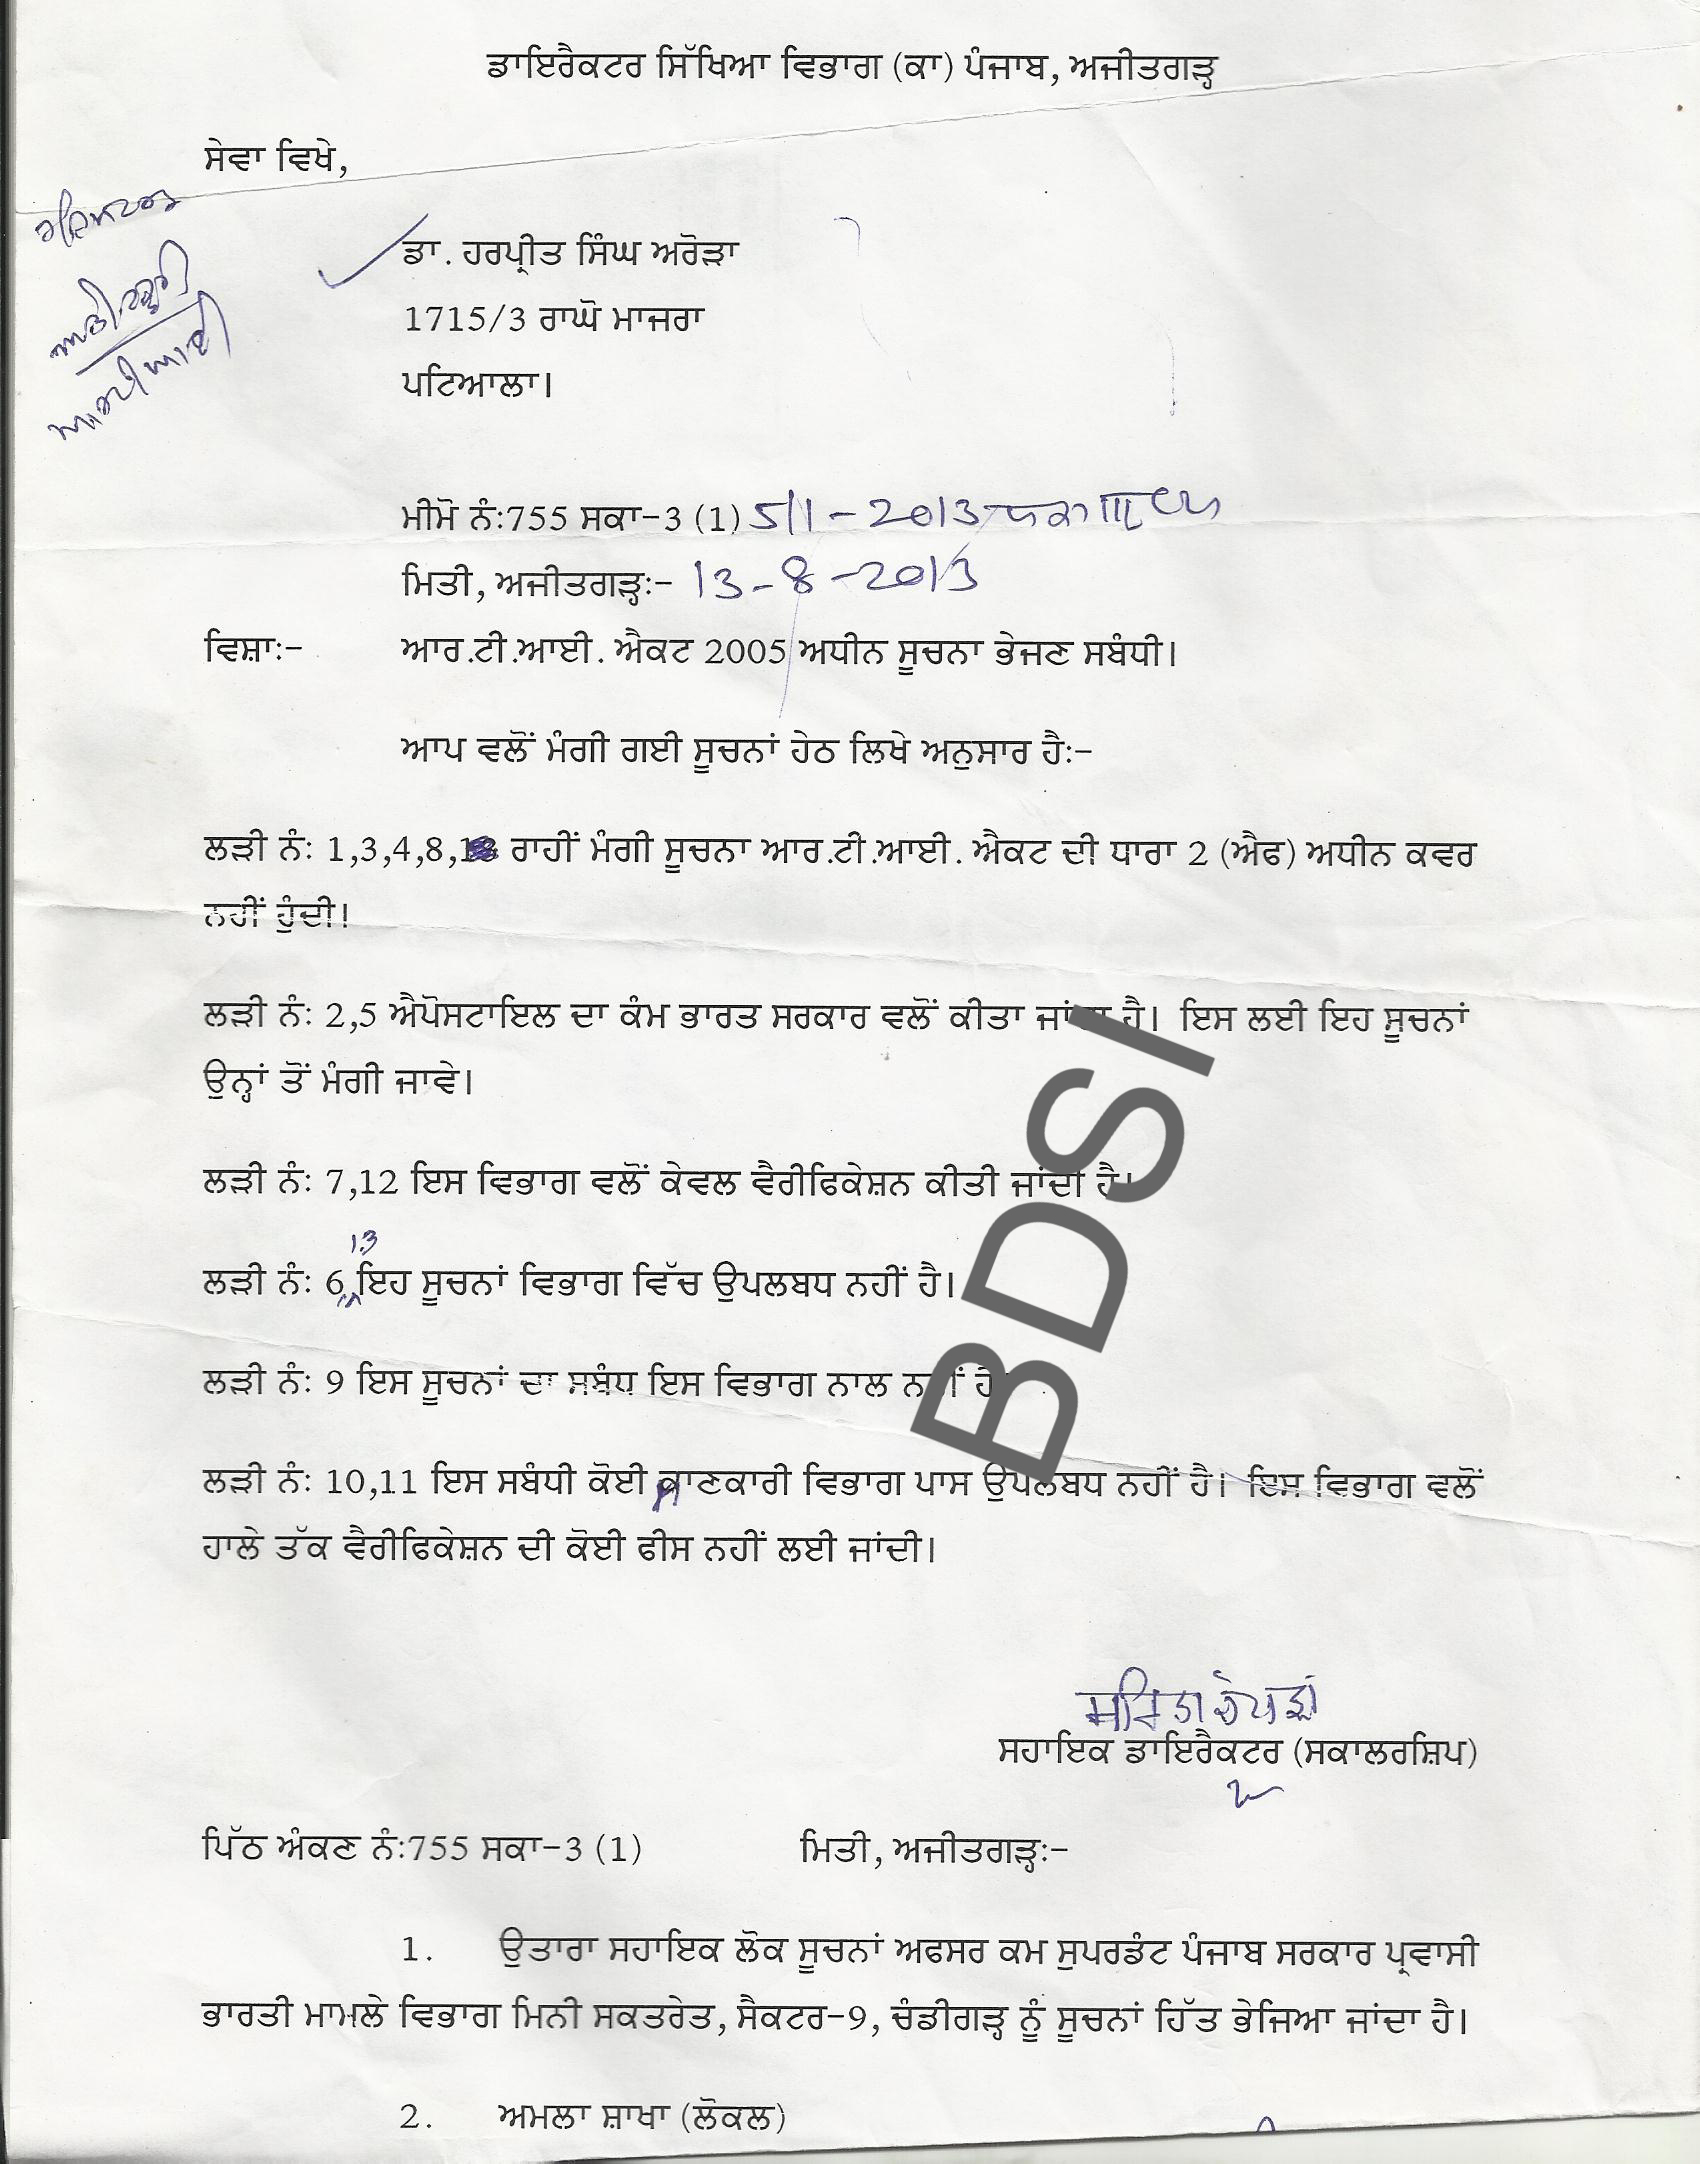 ਡਾਇਰੈਕਟਰ ਸਿੱਖਿਆ ਵਿਭਾਗ (ਕਾ) ਪੰਜਾਬ, ਅਜੀਤਗੜ੍ਹ
ਸੇਵਾ ਵਿਖੇ,
ਡਾ. ਹਰਪ੍ਰੀਤ ਸਿੰਘ ਅਰੋੜਾ
1715/3 ਰਾਘੋ ਮਾਜਰਾ
ਪਟਿਆਲਾ।
ਮੀਮੋ ਨੰ:755 ਸਕਾ-3 (1) 5/1-2013
ਮਿਤੀ, ਅਜੀਤਗੜ੍ਹ:- 13-8-2013
ਵਿਸ਼ਾ:- ਆਰ.ਟੀ.ਆਈ. ਐਕਟ 2005 ਅਧੀਨ ਸੂਚਨਾ ਭੇਜਣ ਸਬੰਧੀ।
ਆਪ ਵਲੋਂ ਮੰਗੀ ਗਈ ਸੂਚਨਾਂ ਹੇਠ ਲਿਖੇ ਅਨੁਸਾਰ ਹੈ:-
ਲੜੀ ਨੰ: 1,3,4,8, ਰਾਹੀਂ ਮੰਗੀ ਸੂਚਨਾ ਆਰ.ਟੀ.ਆਈ. ਐਕਟ ਦੀ ਧਾਰਾ 2 (ਐਫ) ਅਧੀਨ ਕਵਰ
ਨਹੀਂ ਹੁੰਦੀ।
ਲੜੀ ਨੰ: 2,5 ਐਪੋਸਟਾਇਲ ਦਾ ਕੰਮ ਭਾਰਤ ਸਰਕਾਰ ਵਲੋਂ ਕੀਤਾ ਜਾਂਦਾ ਹੈ। ਇਸ ਲਈ ਇਹ ਸੂਚਨਾਂ
ਉਨ੍ਹਾਂ ਤੋਂ ਮੰਗੀ ਜਾਵੇ।
ਲੜੀ ਨੰ: 7,12 ਇਸ ਵਿਭਾਗ ਵਲੋਂ ਕੇਵਲ ਵੈਰੀਫਿਕੇਸ਼ਨ ਕੀਤੀ ਜਾਂਦੀ ਹੈ।
13
ਲੜੀ ਨੰ: 6, ਇਹ ਸੂਚਨਾਂ ਵਿਭਾਗ ਵਿੱਚ ਉਪਲਬਧ ਨਹੀਂ ਹੈ।
ਲੜੀ ਨੰ: 9 ਇਸ ਸੂਚਨਾਂ ਦਾ ਸਬੰਧ ਇਸ ਵਿਭਾਗ ਨਾਲ ਨਹੀਂ ਹੈ
BDSI
ਲੜੀ ਨੰ: 10,11 ਇਸ ਸਬੰਧੀ ਕੋਈ ਜਾਣਕਾਰੀ ਵਿਭਾਗ ਪਾਸ ਉਪਲਬਧ ਨਹੀਂ ਹੈ। ਇਸ ਵਿਭਾਗ ਵਲੋਂ
ਹਾਲੇ ਤੱਕ ਵੈਰੀਫਿਕੇਸ਼ਨ ਦੀ ਕੋਈ ਫੀਸ ਨਹੀਂ ਲਈ ਜਾਂਦੀ।
ਸਹਾਇਕ ਡਾਇਰੈਕਟਰ (ਸਕਾਲਰਸ਼ਿਪ)
ਪਿੱਠ ਅੰਕਣ ਨੰ:755 ਸਕਾ-3 (1) ਮਿਤੀ, ਅਜੀਤਗੜ੍ਹ:-
1. ਉਤਾਰਾ ਸਹਾਇਕ ਲੋਕ ਸੂਚਨਾਂ ਅਫਸਰ ਕਮ ਸੁਪਰਡੰਟ ਪੰਜਾਬ ਸਰਕਾਰ ਪ੍ਰਵਾਸੀ
ਭਾਰਤੀ ਮਾਮਲੇ ਵਿਭਾਗ ਮਿਨੀ ਸਕਤਰੇਤ, ਸੈਕਟਰ-9, ਚੰਡੀਗੜ੍ਹ ਨੂੰ ਸੂਚਨਾਂ ਹਿੱਤ ਭੇਜਿਆ ਜਾਂਦਾ ਹੈ।
2. ਅਮਲਾ ਸ਼ਾਖਾ (ਲੋਕਲ)